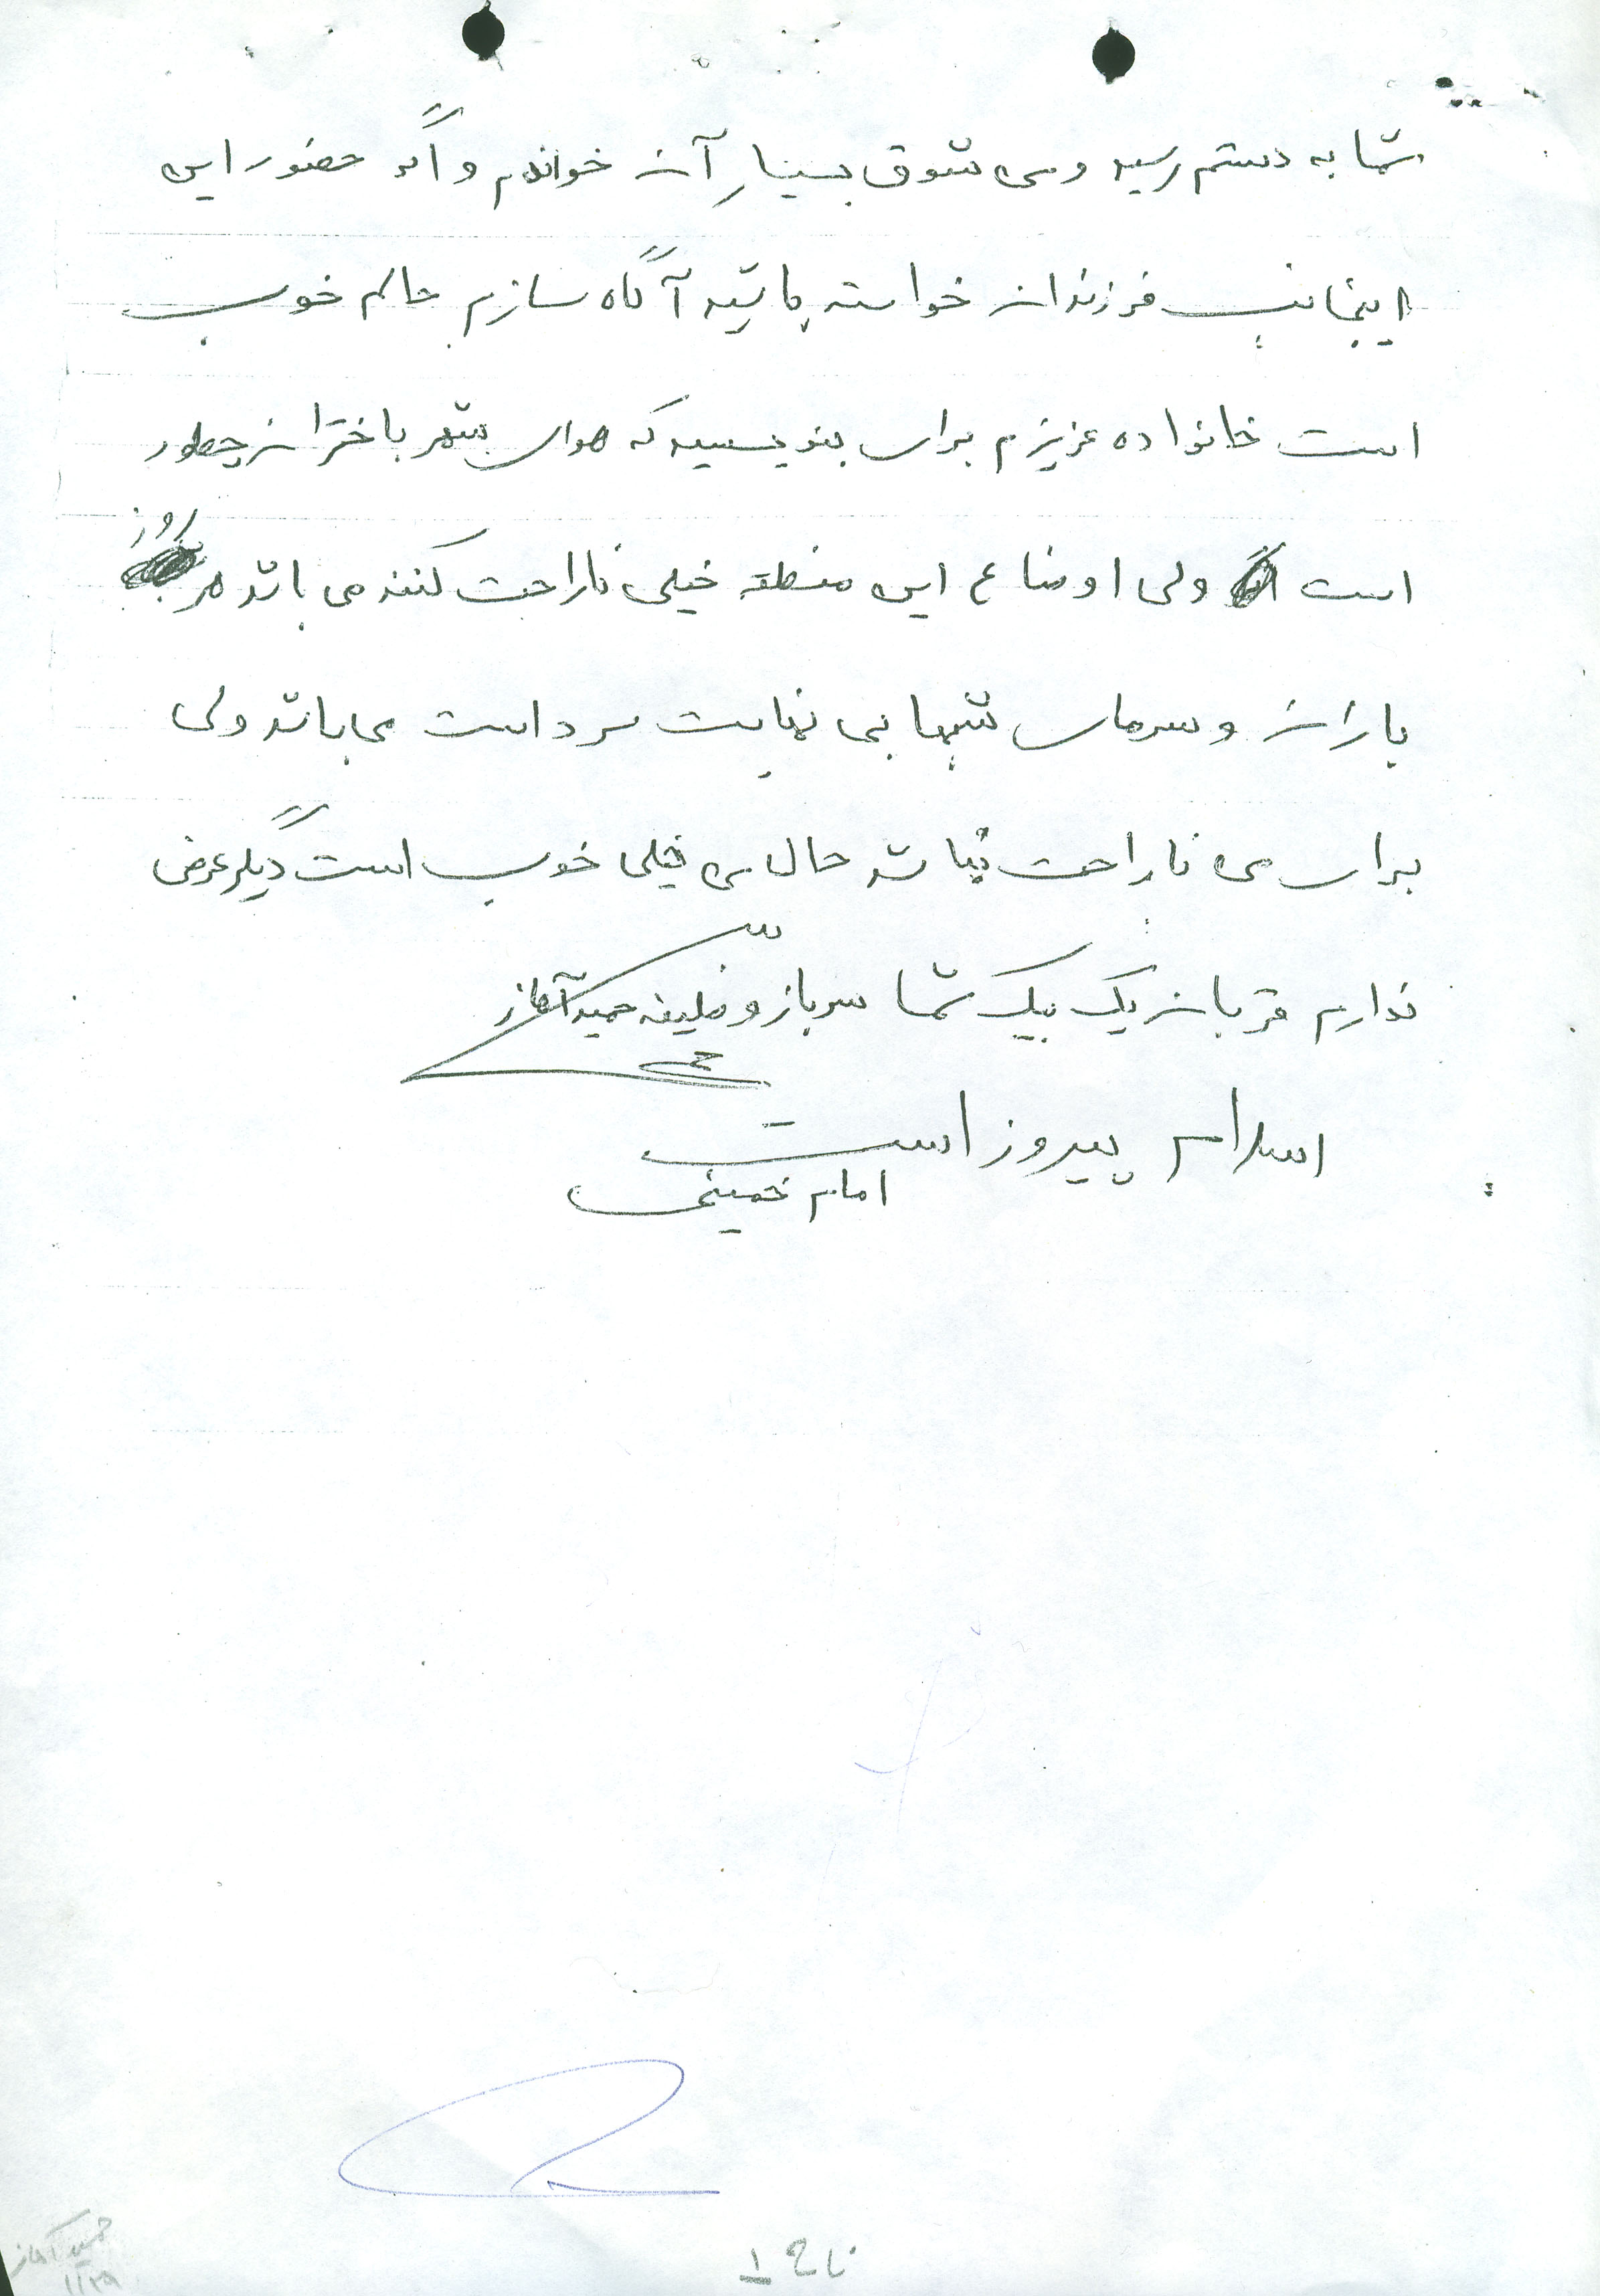 شما به دستم رسید و می شوق بسیار آن خواندم و اگر حضور این
اینجانب فرزندان خواسته باشید آگاه سازم حالم خوب
است خانواده عزیزم برای بنویسید که هوای شهر باختران چطور
است ولی اوضاع این منطقه خیلی ناراحت کننده می باشد هر روز
باران و سرمای شبها بی نهایت سرد است می باشد ولی
برای من ناراحت نباشد حال من خیلی خوب است دیگر عرض
ندارم قربان یک بیک شما سرباز وظیفه حمید آغاز
اسلام پیروز است
امام خمینی
حمید آغاز
۱۱۲۹